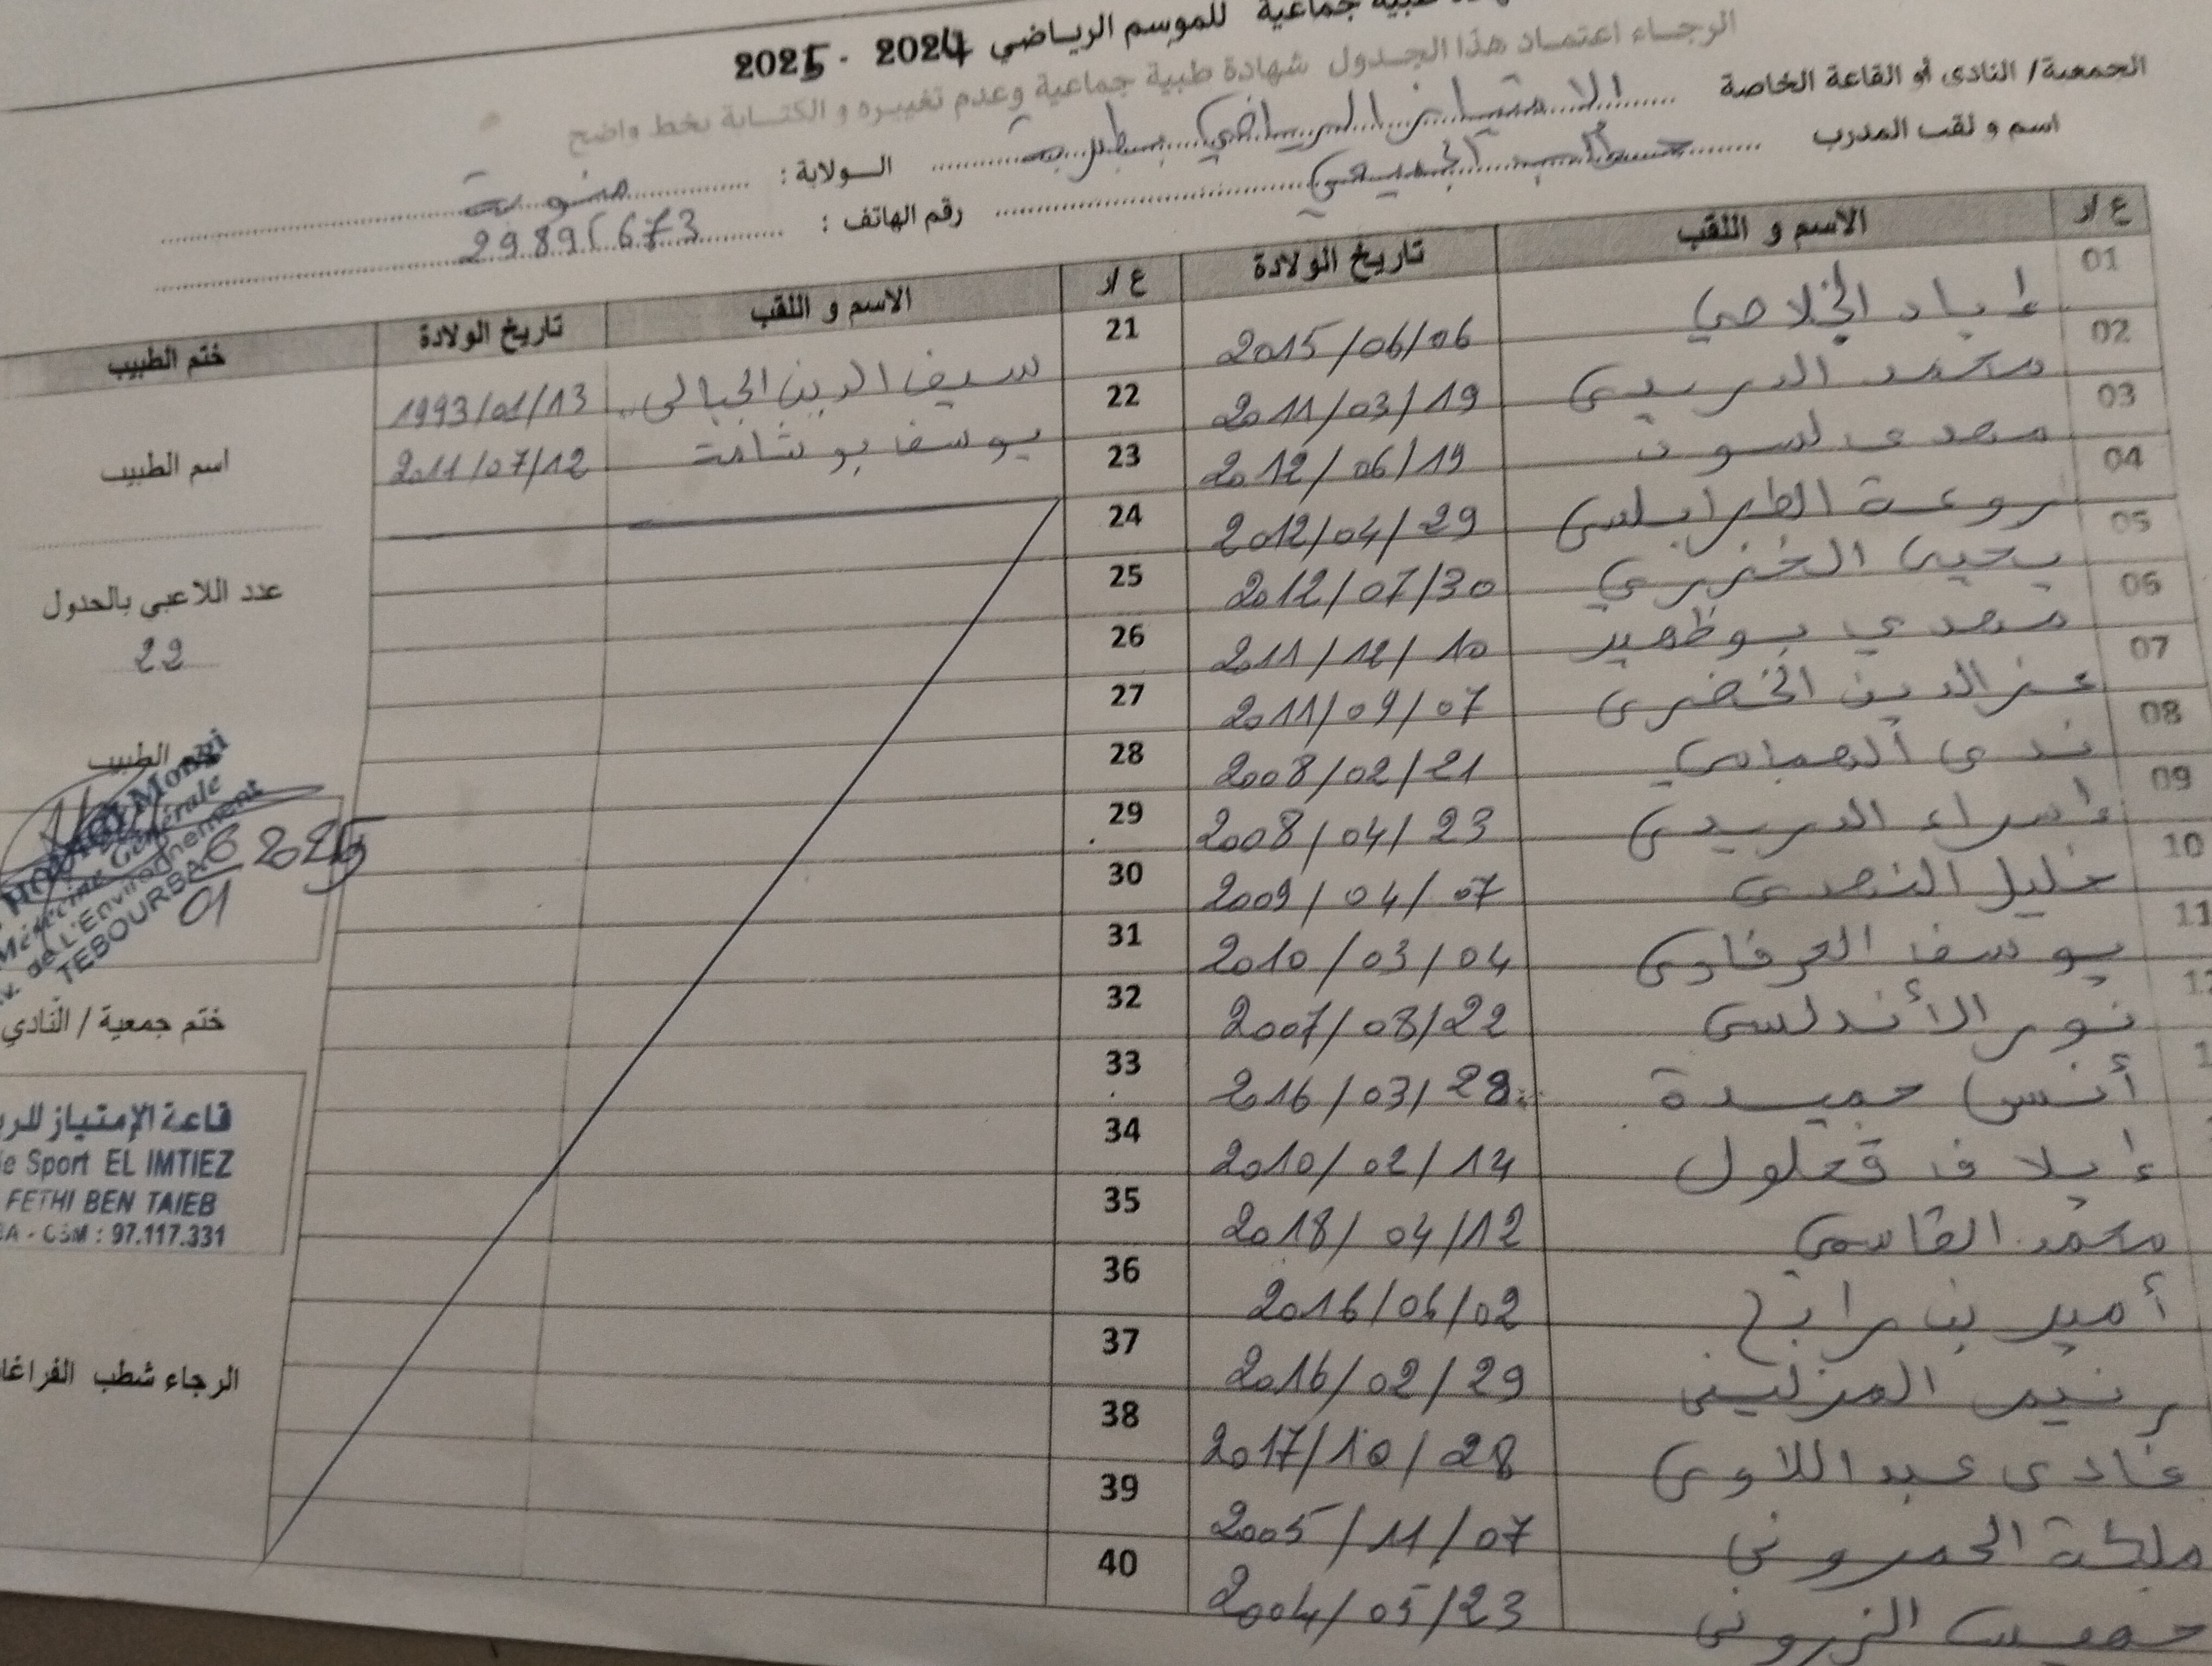 طبية جماعية للموسم الرياضي 2024 - 2025
الرجاء اعتماد هذا الجدول شهادة طبية جماعية وعدم تغييره و الكتابة بخط واضح
الجمعية/ النادي أو القاعة الخاصة الامتياز الرياضي بطبربة الولاية : منوبة
اسم و لقب المدرب الجميعي رقم الهاتف : 29895673
ع/ر الاسم و اللقب تاريخ الولادة ع/ر الاسم و اللقب تاريخ الولادة ختم الطبيب
01 إياد الخلاصي 2015/06/06 21 سيف الدين الجبالي 1993/01/13
02 محمد الدريدي 2011/03/19 22 يوسف بوشامة 2011/07/12 اسم الطبيب
03 2012/06/19 23
04 روعة الطرابلسي 2012/04/29 24
05 يحيى الخنزري 2012/07/30 25 عدد اللاعبي بالجدول
06 مهدي بوظهير 2011/12/10 26 22
07 عز الدين الخضري 2011/09/07 27
08 ندى العباسي 2008/02/21 28 الطبيب
09 إسراء الدريدي 2008/04/23 29 Mongi
10 خليل 2009/04/07 30 Médecine Générale
11 يوسف العرفاوي 2010/03/04 31 de L'Environnement
نور الأندلسي 2007/08/22 32 TEBOURBA
01 2025
أنس حميدة 2016/03/28 33 ختم جمعية / النادي
إيلاف قعلول 2010/02/14 34 قاعة الإمتياز للر
محمد القاسمي 2018/04/12 35 e Sport EL IMTIEZ
FETHI BEN TAIEB
BA - GSM : 97.117.331
أمير بن رابح 2016/06/02 36
رنيم المزليني 2016/02/29 37 الرجاء شطب الفراغا
غادي عبد اللاوي 2017/10/28 38
ملكة الحمروني 2005/11/07 39
2004/05/23 40